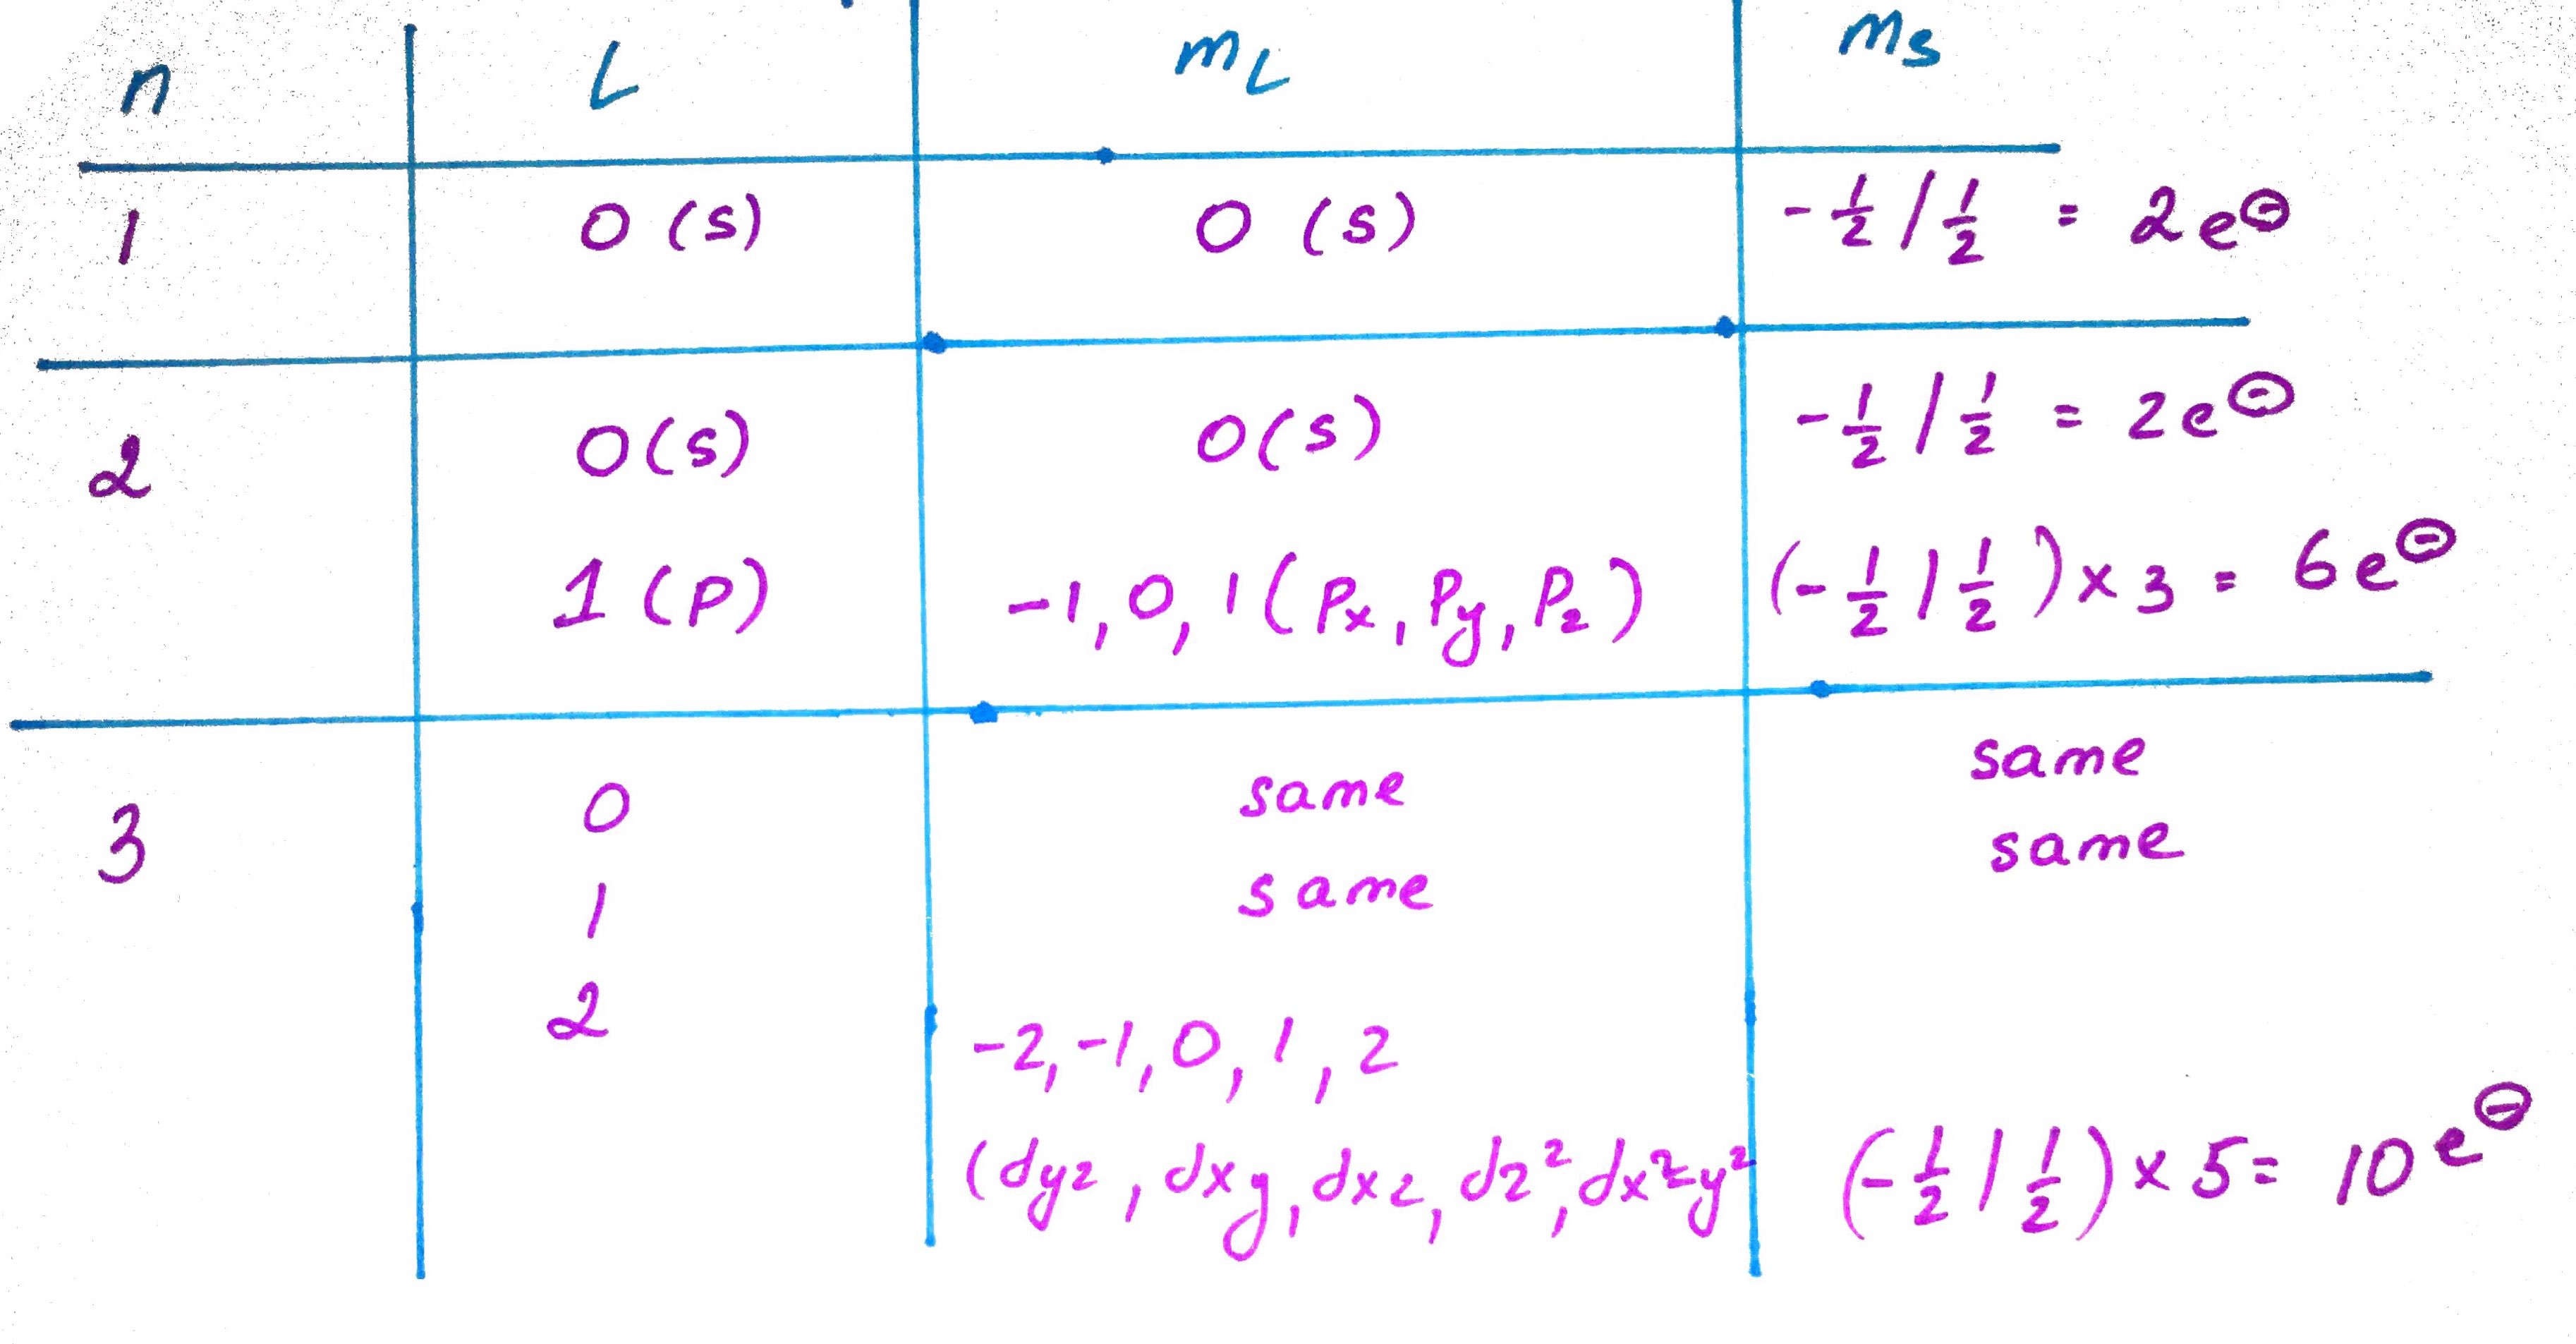 n L m_L m_s
1 0 (s) 0 (s) -1/2 / 1/2 = 2e⊖
2 0(s) 0(s) -1/2 / 1/2 = 2e⊖
1 (p) -1, 0, 1 (Px, Py, Pz) (-1/2 / 1/2) x 3 = 6e⊖
3 0 same same
1 same same
2 -2, -1, 0, 1, 2
(dyz, dxy, dxz, dz², dx²y² (-1/2 / 1/2) x 5 = 10e⊖